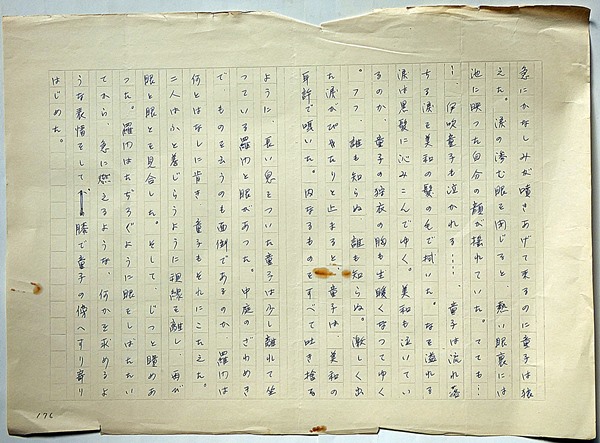 急にかなしみが噴きあげて来るのに童子は狼
えた。涙の滲む眼を閉じると、熱い眼裏には
池に映った自分の顔が揺れていた。ても…
…、伊吹童子も泣かれる……、童子は流れ落
ちる涙を美和の髪の毛で拭いた。なを溢れる
涙は黒髪に沁みこんでゆく。美和も泣いてい
るのか、童子の狩衣の胸も生暖くなってゆく
。フフ、誰も知らぬ、誰も知らぬ。激しく出
た涙がぴたりと止まると、童子は、美和の
耳許で囁いた。内なるものをすべて吐き捨る
ように、長い息をついた童子は少し離れて坐
っている羅門と眼があった。中庭のざわめき
で、ものを云うのも面倒であるのか、羅門は
何とはなしに肯き、童子もそれにこたえた。
二人はふと羞じらうように視線を離し、再び
眼と眼とを見合した。そして、じっと瞶めあ
った。羅門はたぢろぐように眼をしばたたい
てから、急に燃えるような、何かを求めるよ
うな表情をして膝で童子の傍へすり寄り
はじめた。
176